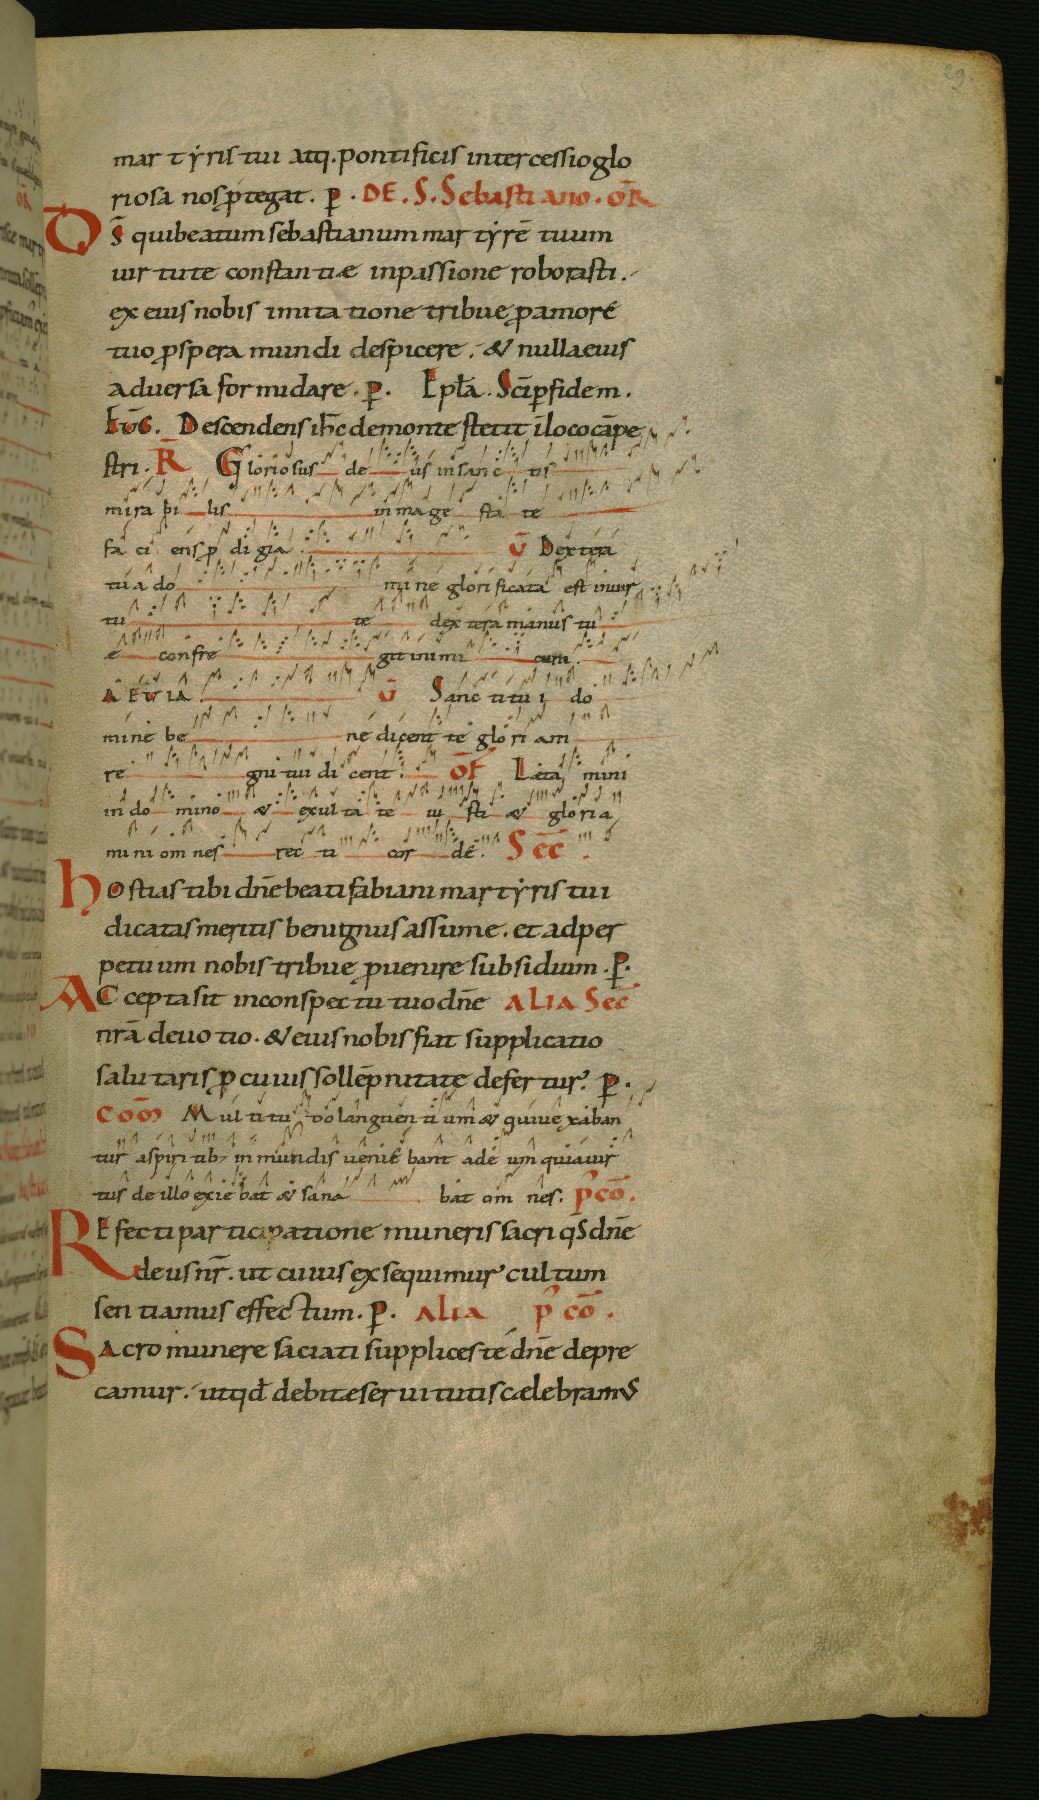 29.
mar tẏris tui atq. pontificis intercessio glo
riosa nos ꝓtegat. ꝑ. DE. S. Sebastiano. OR̄
D S̄ qui beatum sebastianum martẏrē tuum
uirtute constantiæ in passione roborasti.
ex eius nobis imitatione tribue ꝓ amore
tuo ꝓspera mundi despicere. & nulla eius
aduersa formidare. ꝑ. Epl̄a. Sc̄i ꝑ fidem.
Eūg. Descendens ih̄c de monte stetit ī loco cāpe
stri. R̄ Gloriosus deus in sanc tis
mirabi lis in mage sta te
faci ens ꝓdigia. V̄ Dextera
tua do mi ne glorificata est in uir
tu te dextera manus tu
a confre git inimi cum.
AEVIA. V̄ Sanc ti tu i do
mine be ne dicent te gloriam
re gni tui di cent. OF̄ Leta mini
in do mino & exulta te iu sti & gloria
mini omnes rec ti cor de. SEC̄.
Hostias tibi dn̄e beati fabiani martẏris tui
dicatas meritis benignus assume. et ad per
petuum nobis tribue ꝓuenire subsidium. ꝑ.
Accepta sit in conspectu tuo dn̄e ALIA SEC̄
nrā deuotio. & eius nobis fiat supplicatio
salutaris ꝓ cuius sollēpnitate defertur. ꝑ.
COM̄ Multitudo languentium & qui uexaban
tur a spiritib; inmundis uenie bant ad eum quia uir
tus de illo exiebat & sana bat om nes. P̄ CŌ.
Refecti participatione muneris sacri qs̄ dn̄e
deus nr̄. ut cuius exsequimur cultum
sentiamus effectum. ꝑ. ALIA P̄ CŌ.
Sacro munere saciati supplices te dn̄e depre
camur. ut qđ debitæ seruitutis cælebramus